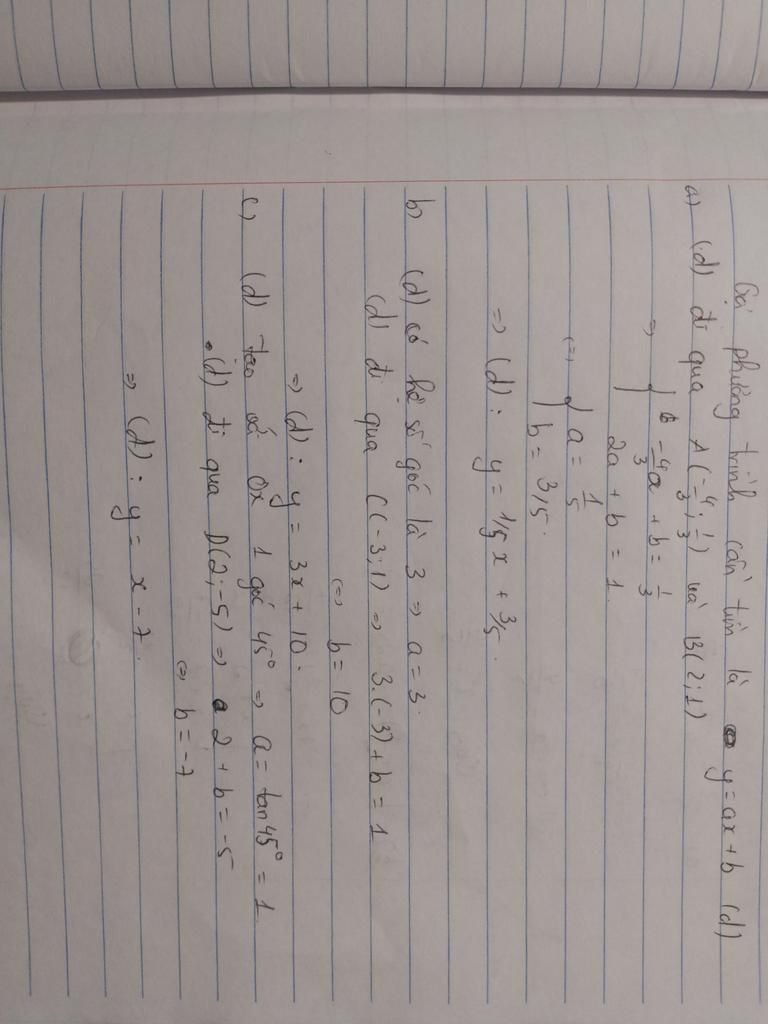 Gọi phương trình cần tìm là y = ax + b (d)
a) (d) đi qua A(-4/3; 1/3) và B(2; 1)
=> { -4/3 a + b = 1/3
2a + b = 1.
<=> { a = 1/5
b = 3/5.
=> (d): y = 1/5 x + 3/5.
b) (d) có hệ số góc là 3 => a = 3.
(d) đi qua C(-3; 1) => 3.(-3) + b = 1
<=> b = 10
=> (d): y = 3x + 10.
c) (d) tạo với Ox 1 góc 45° => a = tan 45° = 1.
(d) đi qua D(2; -5) => 2 + b = -5
<=> b = -7
=> (d): y = x - 7.